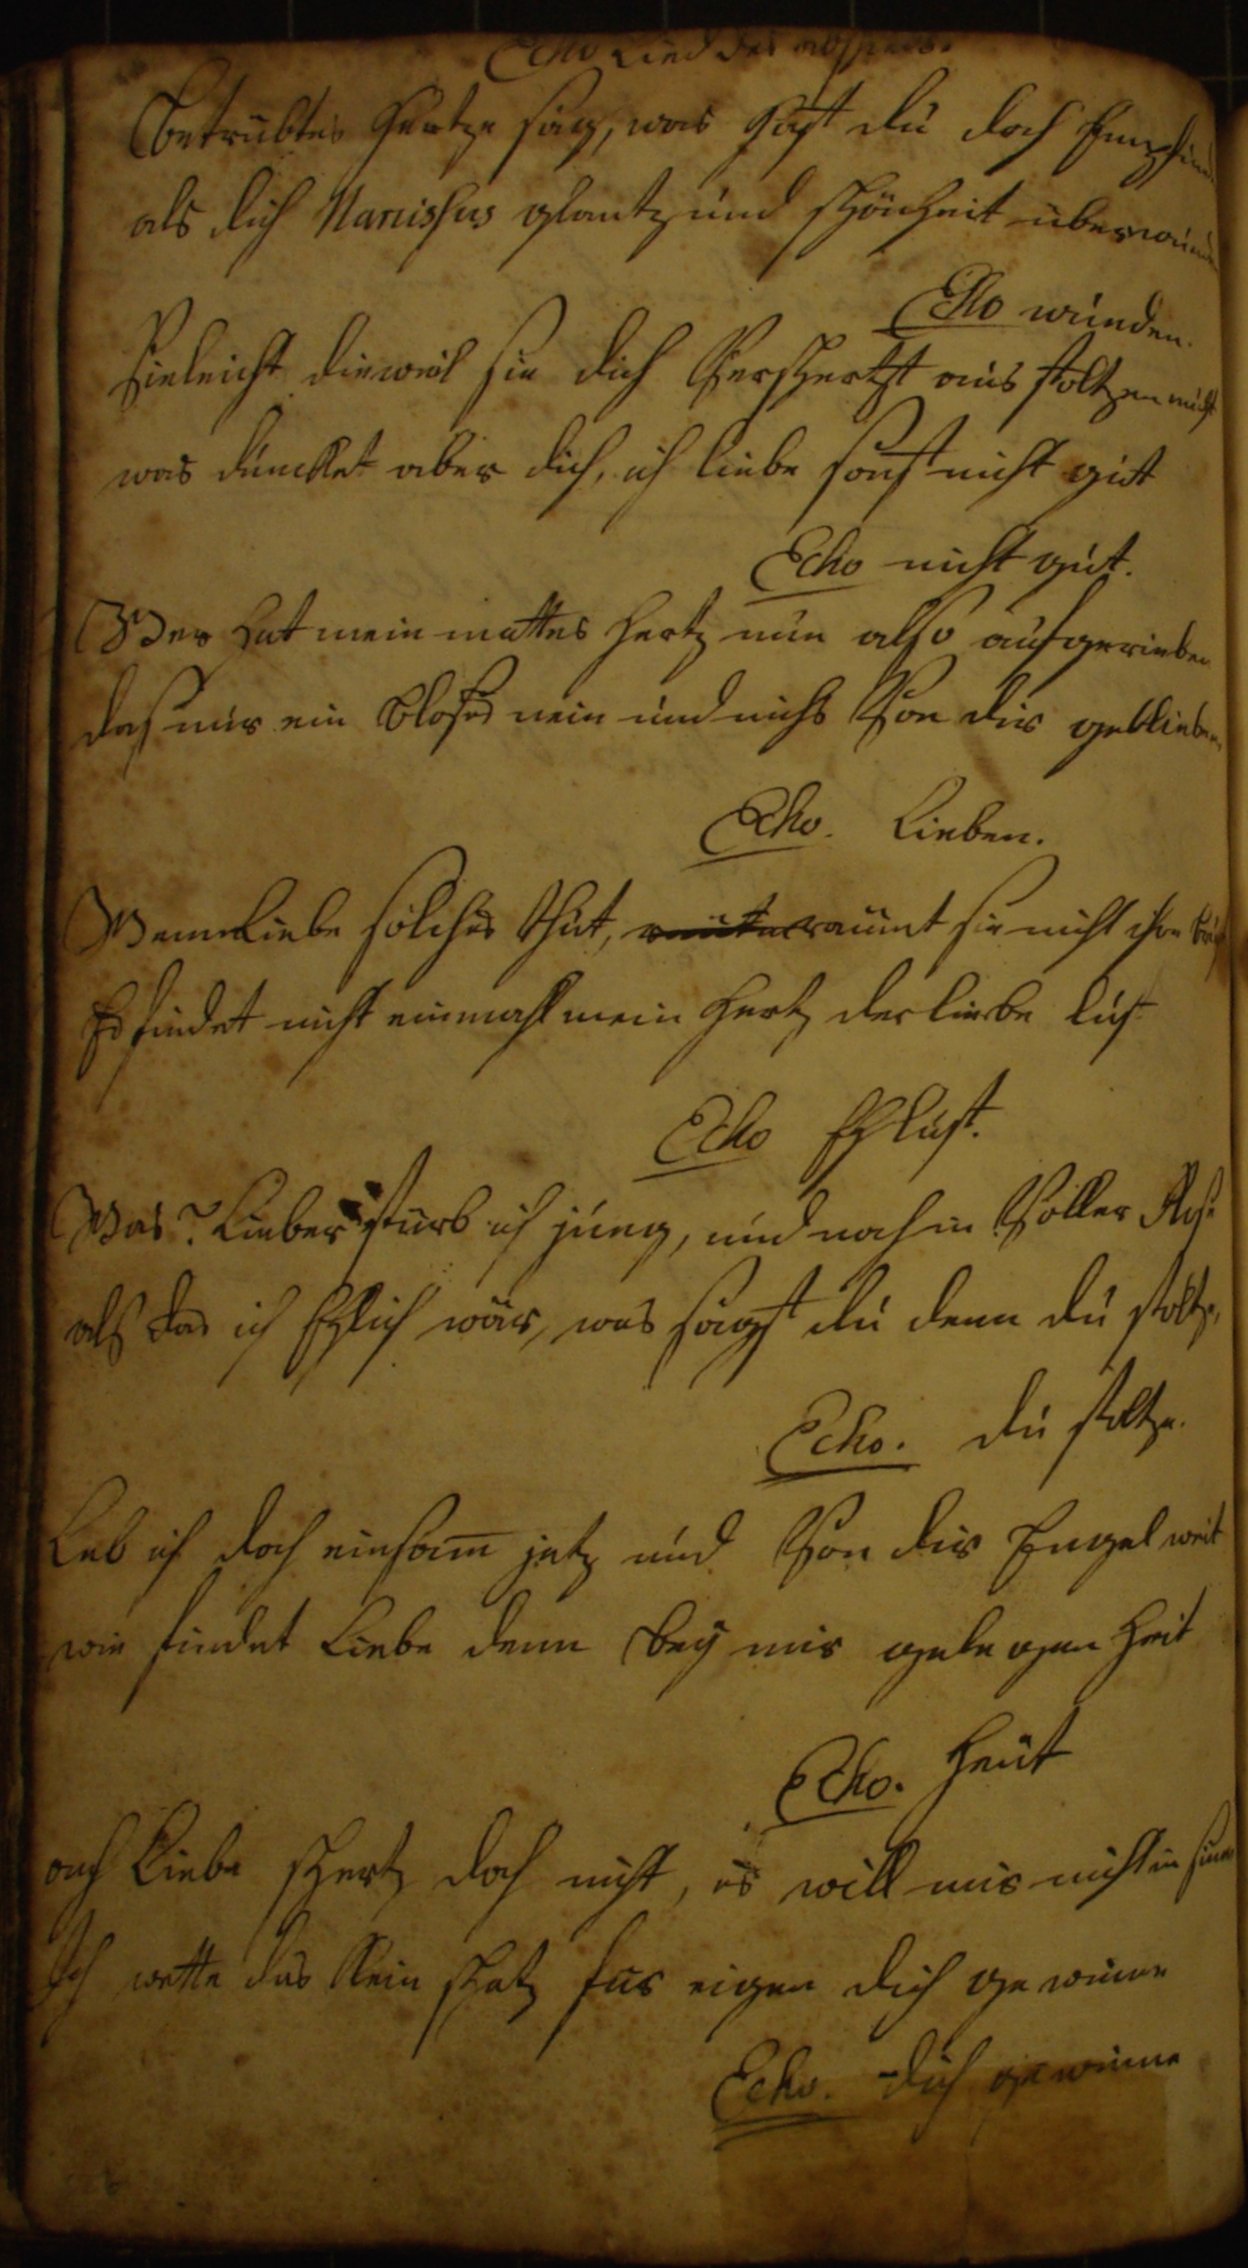 Echo Lied des
Betrübtes Hertze sag, was hast du doch Empfund
als dich Narcissus glantz und schönheit überwund
Echo wunden.
Vieleicht dieweil sie dich Verschertzt aus stoltzen muht
was düncket aber dich, ich liebe sonst nicht gut
Echo nicht gut.
Wer hat mein mattes Hertz nun also aufgerieben
das mir ein bloses nein und nichts Von dir geblieben
Echo. Lieben.
Wenn Liebe solches thut, raumt sie nicht ihre
Es findet nicht einmahl mein Hertz der liebe lust
Echo Ehlust.
Was? Lieber sturb ich jung, und noch in Voller
als das ich Ehlich wär, was sagst du denn du stoltze,
Echo. du stoltze.
Leb ich doch einsam jetz und Von dir Engel weit
wie findet Liebe denn bey mir gelegenheit
Echo. heut
ach Liebe schertz doch nicht, es will mir nicht in sinn
Ich wette das kein schatz für eigen dich gewinne
Echo. dich gewinne